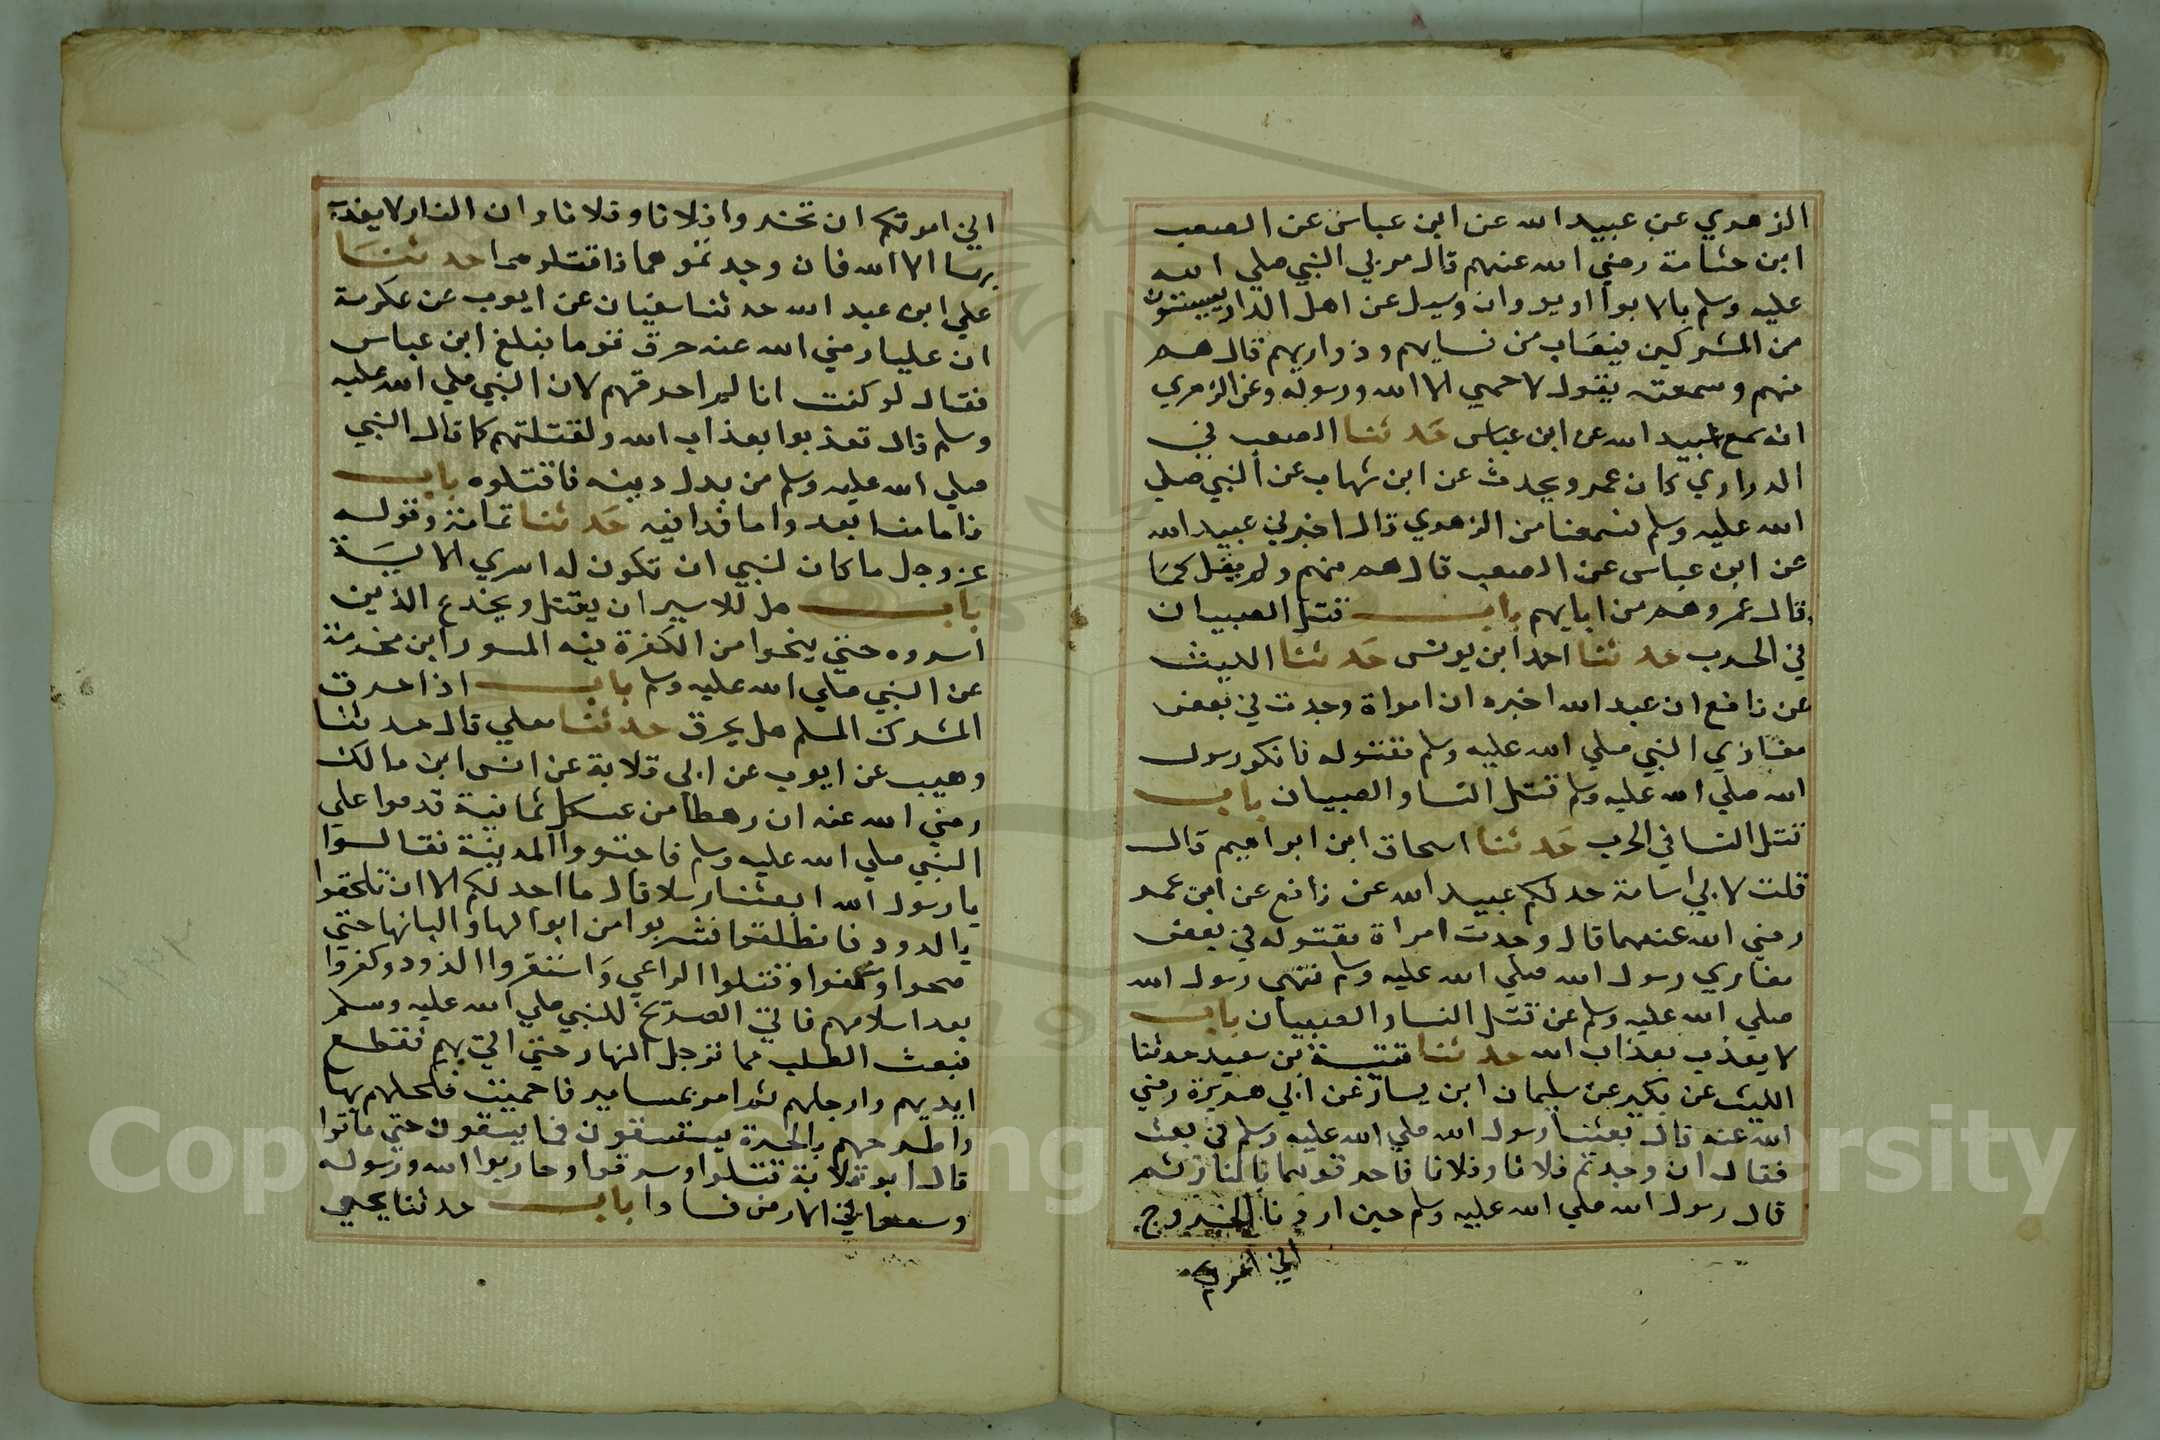 الزهري عن عبيد الله عن ابن عباس عن الصعب
ابن جثامة رضي الله عنهم قال مر بي النبي صلي الله
عليه وسلم بالابوا او بودان وسيل عن اهل الدار يبيتون
من المشركين فيصاب من نسايهم وذراريهم قال هم
منهم وسمعته يقول لا حمي الا الله ورسوله وعن الزهري
انه سمع عبيد الله عن ابن عباس حدثنا الصعب في
الدراري كان عمرو يحدث عن ابن شهاب عن النبي صلي
الله عليه وسلم فسمعنا من الزهري قال اخبرني عبيد الله
عن ابن عباس عن الصعب قال هم منهم ولم يقل كما
قال عمرو هم من ابايهم باب قتل الصبيان
في الحرب حدثنا احمد ابن يونس حدثنا الليث
عن نافع ان عبد الله اخبره ان امراة وجدت في بعض
مغازي النبي صلي الله عليه وسلم مقتوله فانكر رسول
الله صلي الله عليه وسلم قتل النسا والصبيان باب
قتل النسا في الحرب حدثنا اسحاق ابن ابراهيم قال
قلت لابي اسامة حدثكم عبيد الله عن نافع عن ابن عمر
رضي الله عنهما قال وجدت امراة مقتوله في بعض
مغازي رسول الله صلي الله عليه وسلم فنهى رسول الله
صلي الله عليه وسلم عن قتل النسا والصبيان باب
لا يعذب بعذاب الله حدثنا قتيبة بن سعيد حدثنا
الليث عن بكير عن سليمان ابن يسار عن ابي هريرة رضي
الله عنه قال بعثنا رسول الله صلي الله عليه وسلم في بعث
فقال ان وجدتم فلانا وفلانا فاحرقوهما بالنار ثم
قال رسول الله صلي الله عليه وسلم حين اردنا الخروج
اني امرتكم
اني امرتكم ان تحرقوا فلانا وفلانا وان النار لا يعذب
بها الا الله فان وجدتموهما فاقتلوهما حدثنا
علي ابن عبد الله حدثنا سفيان عن ايوب عن عكرمة
ان عليا رضي الله عنه حرق قوما فبلغ ابن عباس
فقال لو كنت انا لم احرقهم لان النبي صلي الله عليه
وسلم قال تعذبوا بعذاب الله ولقتلتهم كما قال النبي
صلي الله عليه وسلم من بدل دينه فاقتلوه باب
فاما منا بعد واما فدا فيه حدثنا ثمامة وقوله
عز وجل ما كان لنبي ان تكون له اسري الاية
باب هل للاسير ان يقتل ويخدع الذين
اسروه حتي ينجوا من الكفرة فيه المسور ابن مخرمة
عن النبي صلي الله عليه وسلم باب اذا حرق
المشرك المسلم هل يحرق حدثنا معلي قال حدثنا
وهيب عن ايوب عن ابي قلابة عن انس ابن مالك
رضي الله عنه ان رهطا من عكل ثمانية قدموا علي
النبي صلي الله عليه وسلم فاجتووا المدينة فقالوا
يا رسول الله ابعثنا رسلا قال ما اجد لكم الا ان تلحقوا
بالدود فانطلقوا فشربوا من ابوالها والبانها حتي
صحوا وسمنوا وقتلوا الراعي واستقروا الذود وكفروا
بعد اسلامهم فاتي الصريخ للنبي صلي الله عليه وسلم
فبعث الطلب فما ترجل النهار حتي اتي بهم فقطع
ايديهم وارجلهم ثم امر بمسامير فاحميت فكحلهم بها
واطرحهم بالحرة يستسقون فما يسقون حتي ماتوا
قال ابو قلابة قتلوا وسرقوا وحاربوا الله ورسوله
وسعوا في الارض فسادا باب حدثنا يحيي
Copyright © King Saud University